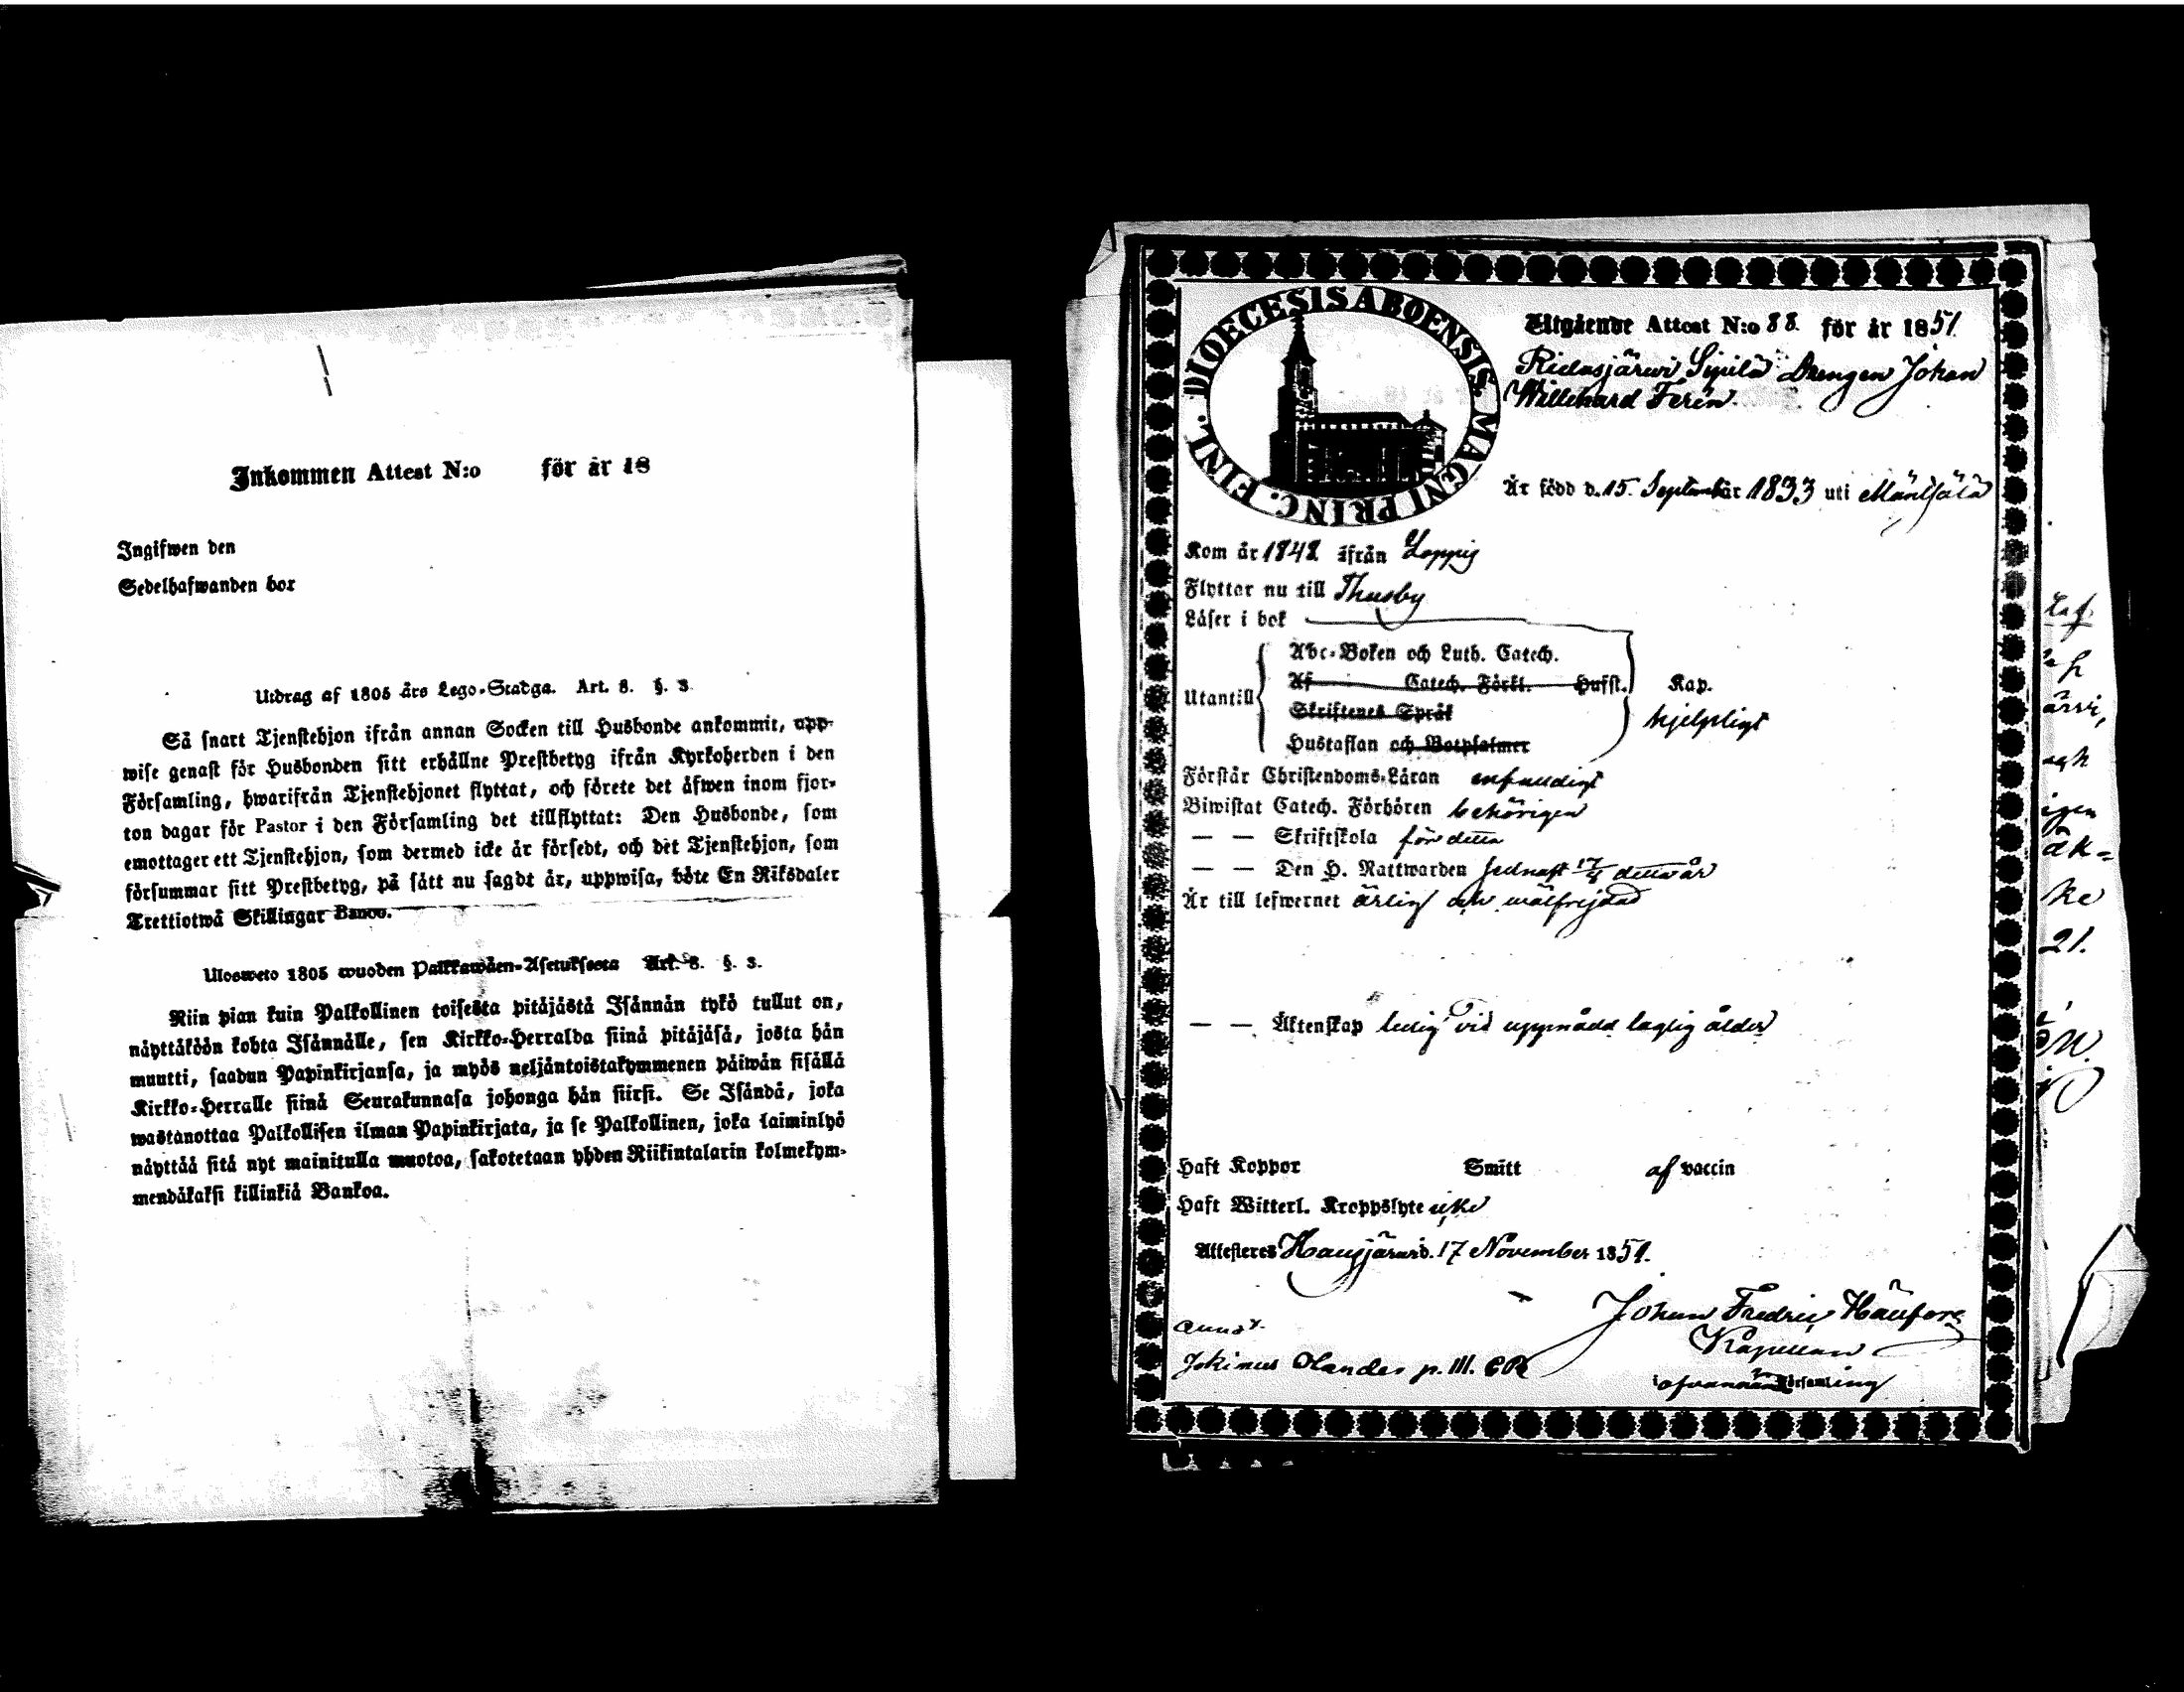 Inkommen Attest N:o för år 18
Ingifwen den
Sedelhafwanden bor
Utdrag af 1805 års Lego-Stadga. Art. 8. §. 3.
Så snart Tjenstehjon ifrån annan Socken till Husbonde ankommit, upp-
wise genast för Husbonden sitt erhållne Prestbetyg ifrån Kyrkoherden i den
Församling, hwarifrån Tjenstehjonet flyttat, och förete det äfwen inom fjor-
ton dagar för Pastor i den Församling det tillflyttat: Den Husbonde, som
emottager ett Tjenstehjon, som dermed icke är försedt, och det Tjenstehjon, som
försummar sitt Prestbetyg, på sätt nu sagdt är, uppwisa, böte En Riksdaler
Trettiotwå Skillingar Banco.
Ulosweto 1805 wuoden Palkkawäen-Asetuksesta Art. 8. §. 3.
Niin pian kuin Palkollinen toisesta pitäjästä Isännän tykö tullut on,
näyttäköön kohta Isännälle, sen Kirkko-Herralda siinä pitäjäsä, josta hän
muutti, saadun Papinkirjansa, ja myös neljäntoistakymmenen päiwän sisällä
Kirkko-Herralle siinä Seurakunnasa johonga hän siirsi. Se Isändä, joka
wastanottaa Palkollisen ilman Papinkirjata, ja se Palkollinen, joka laiminlyö
näyttää sitä nyt mainitulla muotoa, sakotetaan yhden Riikintalarin kolmekym-
mendäkaksi killinkiä Bankoa.
DIOECESIS ABOENSIS MAGNI PRINC. FINL.
Utgående Attest N:o 88. för år 1851.
Ridasjärwi Sipilä Drengen Johan
Willehard Ferin.
Är född d. 15. September 1833 uti Mäntsälä
Kom år 1848 ifrån Loppis
Flyttar nu till Thusby
Läser i bok
Abc-Boken och Luth. Catech.
Af Catech. Förkl. Hufst. Kap.
Utantill
Skriftenes Språk
hjelpligt
Hustaflan och Botpsalmer
Förstår Christendoms-Läran enfaldigt
Biwistat Catech. Förhören behörigen
— — Skriftskola för detta
— — Den H. Nattwarden sednast 17/8 detta år
Är till lefwernet ärlig och wälfrejdad
— — Äktenskap ledig vid uppnådd laglig ålder
Haft Koppor Smitt af vaccin
Haft Witterl. Kroppslyte icke
Attesteres Hausjärwi d. 17 November 1851.
Johan Fredric
Kapellan
i ofvannämnde Församling
Jokinus Olandes p. III.